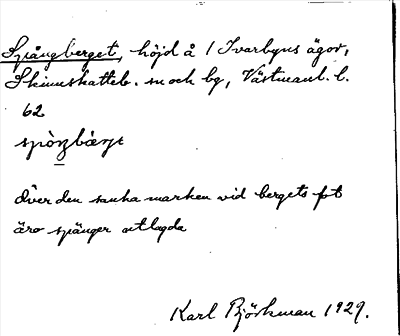 Spångberget, höjd å 1 Ivarbyns ägor,
Skinnskatteb. sn och bg, Västmanl. l.
62
Över den sanka marken vid bergets fot
äro spänger utlagda
Karl Björkman 1929.